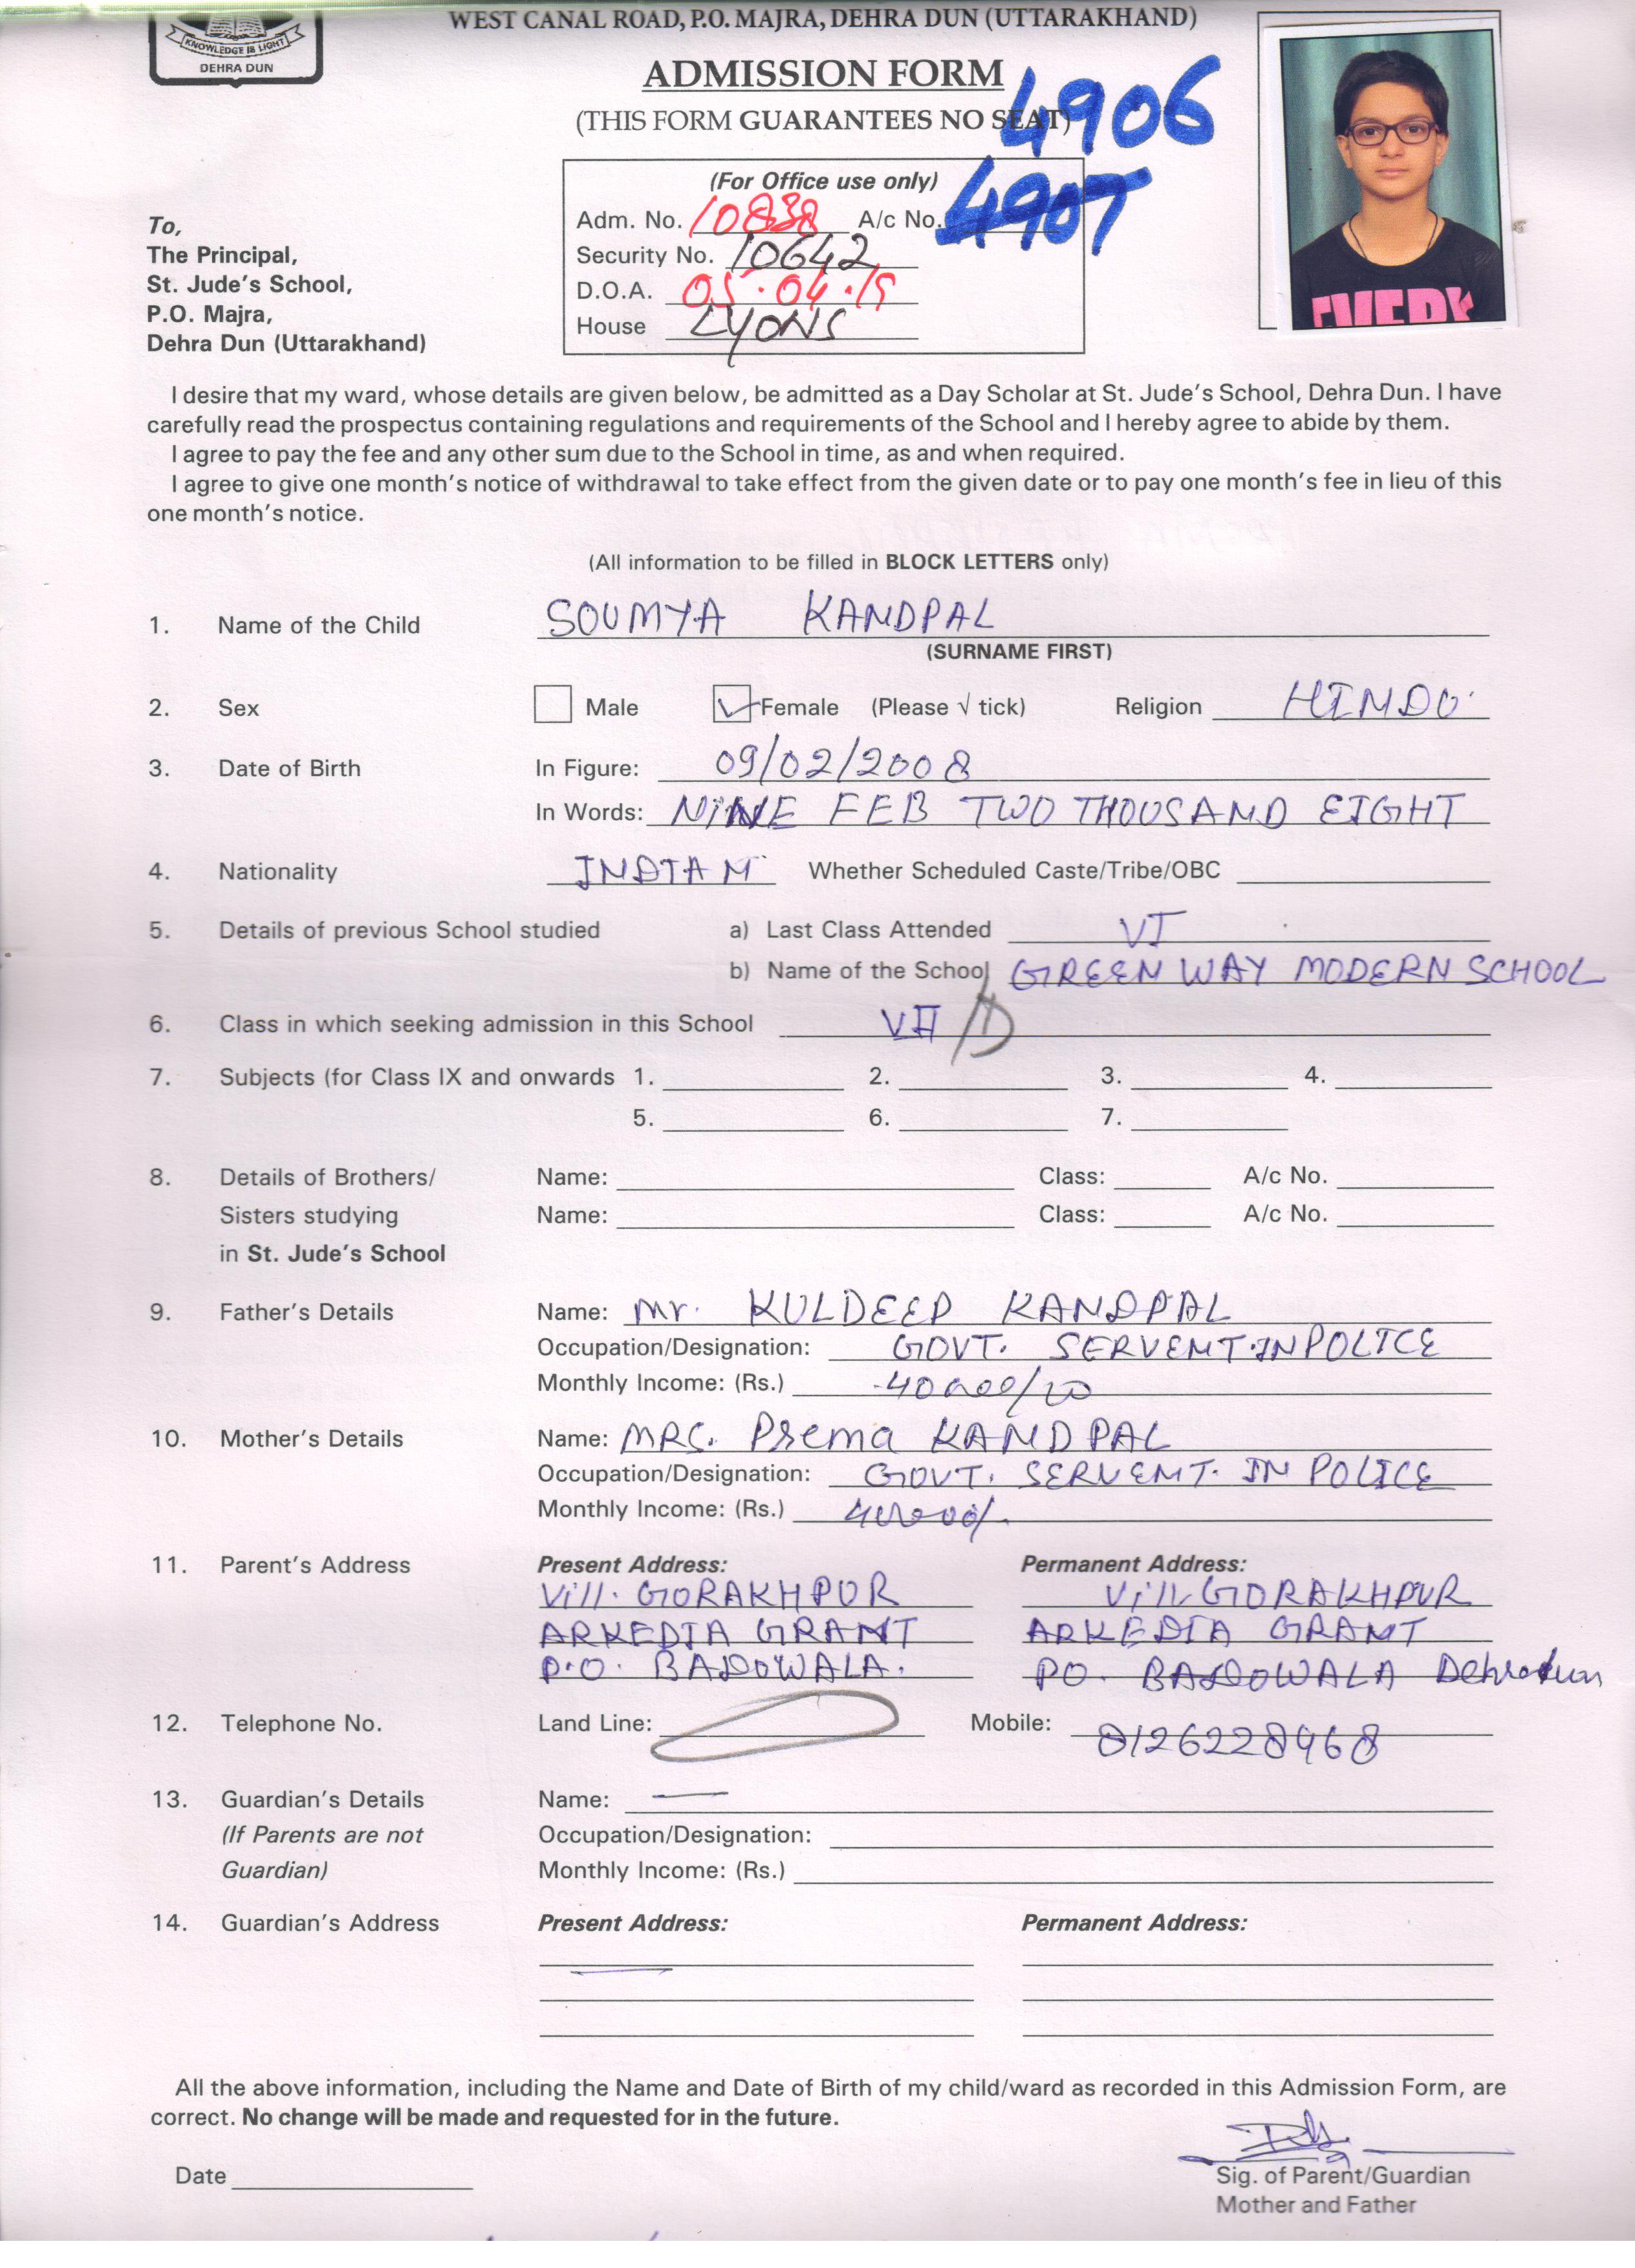 WEST CANAL ROAD, P.O. MAJRA, DEHRA DUN (UTTARAKHAND)
KNOWLEDGE IS LIGHT
DEHRA DUN
ADMISSION FORM
(THIS FORM GUARANTEES NO SEAT)
4906
(For Office use only)
Adm. No. 10838 A/c No. 4907
Security No. 10642
D.O.A. 05.04.19
House LYONS
To,
The Principal,
St. Jude's School,
P.O. Majra,
Dehra Dun (Uttarakhand)
I desire that my ward, whose details are given below, be admitted as a Day Scholar at St. Jude's School, Dehra Dun. I have
carefully read the prospectus containing regulations and requirements of the School and I hereby agree to abide by them.
I agree to pay the fee and any other sum due to the School in time, as and when required.
I agree to give one month's notice of withdrawal to take effect from the given date or to pay one month's fee in lieu of this
one month's notice.
(All information to be filled in BLOCK LETTERS only)
1. Name of the Child SOUMYA KANDPAL
(SURNAME FIRST)
2. Sex Male Female (Please √ tick) Religion HINDU
3. Date of Birth In Figure: 09/02/2008
In Words: NINE FEB TWO THOUSAND EIGHT
4. Nationality INDIAN Whether Scheduled Caste/Tribe/OBC
5. Details of previous School studied a) Last Class Attended VI
b) Name of the School GREEN WAY MODERN SCHOOL
6. Class in which seeking admission in this School VII /D
7. Subjects (for Class IX and onwards 1. 2. 3. 4.
5. 6. 7.
8. Details of Brothers/ Name: Class: A/c No.
Sisters studying Name: Class: A/c No.
in St. Jude's School
9. Father's Details Name: Mr. KULDEEP KANDPAL
Occupation/Designation: GOVT. SERVENT. IN POLICE
Monthly Income: (Rs.)
10. Mother's Details Name: MRS. Prema KANDPAL
Occupation/Designation: GOVT. SERVENT. IN POLICE
Monthly Income: (Rs.)
11. Parent's Address Present Address: Permanent Address:
Vill. GORAKHPUR Vill. GORAKHPUR
ARKEDIA GRANT ARKEDIA GRANT
P.O. BADOWALA. PO. BADOWALA Dehradun
12. Telephone No. Land Line: Mobile: 8126228968
13. Guardian's Details Name: —
(If Parents are not Occupation/Designation:
Guardian) Monthly Income: (Rs.)
14. Guardian's Address Present Address: Permanent Address:
All the above information, including the Name and Date of Birth of my child/ward as recorded in this Admission Form, are
correct. No change will be made and requested for in the future.
Date
Sig. of Parent/Guardian
Mother and Father